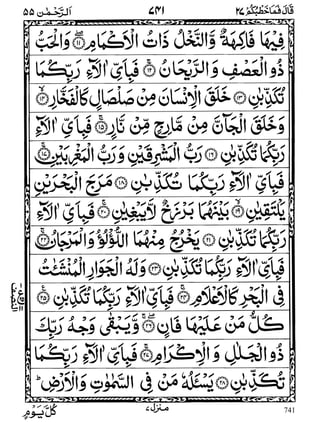 قَالَ فَمَا خَطْبُكُمْ ٢٧ ٧٤١ اَلرَّحْمٰن ٥٥
فِيْهَا فَاكِهَةٌ وَّالنَّخْلُ ذَاتُ الْاَكْمَامِ ﴿١١﴾ وَالْحَبُّ
ذُو الْعَصْفِ وَالرَّيْحَانُ ﴿١٢﴾ فَبِاَيِّ اٰلَآءِ رَبِّكُمَا
تُكَذِّبٰنِ ﴿١٣﴾ خَلَقَ الْاِنْسَانَ مِنْ صَلْصَالٍ كَالْفَخَّارِ ﴿١٤﴾
وَخَلَقَ الْجَآنَّ مِنْ مَّارِجٍ مِّنْ نَّارٍ ﴿١٥﴾ فَبِاَيِّ اٰلَآءِ
رَبِّكُمَا تُكَذِّبٰنِ ﴿١٦﴾ رَبُّ الْمَشْرِقَيْنِ وَرَبُّ الْمَغْرِبَيْنِ ﴿١٧﴾
فَبِاَيِّ اٰلَآءِ رَبِّكُمَا تُكَذِّبٰنِ ﴿١٨﴾ مَرَجَ الْبَحْرَيْنِ
يَلْتَقِيٰنِ ﴿١٩﴾ بَيْنَهُمَا بَرْزَخٌ لَّا يَبْغِيٰنِ ﴿٢٠﴾ فَبِاَيِّ اٰلَآءِ
رَبِّكُمَا تُكَذِّبٰنِ ﴿٢١﴾ يَخْرُجُ مِنْهُمَا اللُّؤْلُؤُ وَالْمَرْجَانُ ﴿٢٢﴾
فَبِاَيِّ اٰلَآءِ رَبِّكُمَا تُكَذِّبٰنِ ﴿٢٣﴾ وَلَهُ الْجَوَارِ الْمُنْشَئٰتُ
فِي الْبَحْرِ كَالْاَعْلَامِ ﴿٢٤﴾ فَبِاَيِّ اٰلَآءِ رَبِّكُمَا تُكَذِّبٰنِ ﴿٢٥﴾
كُلُّ مَنْ عَلَيْهَا فَانٍ ﴿٢٦﴾ وَّيَبْقٰى وَجْهُ رَبِّكَ
ذُو الْجَلٰلِ وَالْاِكْرَامِ ﴿٢٧﴾ فَبِاَيِّ اٰلَآءِ رَبِّكُمَا
تُكَذِّبٰنِ ﴿٢٨﴾ يَسْـَٔلُهٗ مَنْ فِي السَّمٰوٰتِ وَالْاَرْضِ ؕ
كُلَّ يَوْمٍ منزل ٧ 741